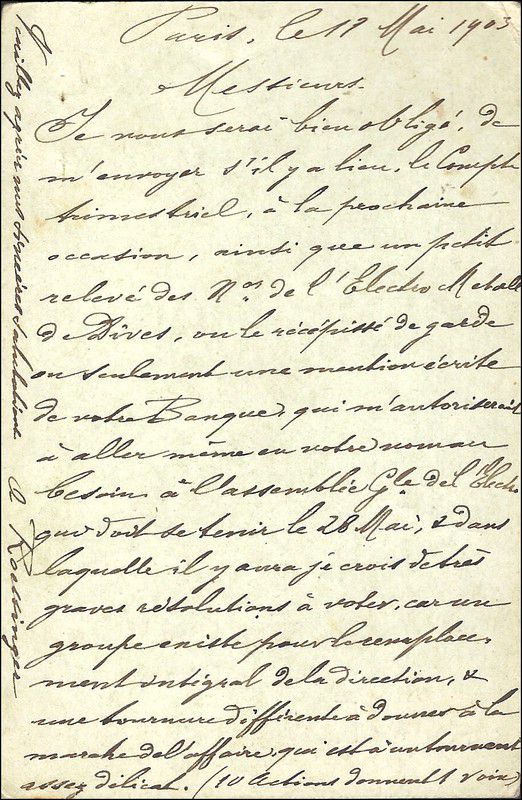 Paris, le 17 Mai 1903
Messieurs.
Je vous serai bien obligé, de
m'envoyer s'il y a lieu, le Compte
trimestriel, à la prochaine
occasion, ainsi que un petit
relevé des Nos de l'Electro Metall
de Dives, ou le récépissé de garde
ou seulement une mention écrite
de votre Banque, qui m'autoriserait
à aller même en votre nom au
besoin à l'assemblée Gle de l'Electro
qui doit se tenir le 28 Mai, & dans
laquelle il y aura je crois de très
graves résolutions à voter, car un
groupe existe pour le remplace-
ment intégral de la direction, &
une tournure différente à donner à la
marche de l'affaire, qui est à un tournant
assez délicat. (10 Actions donnent 1 voix)
Veuillez agréer mes sincères Salutations